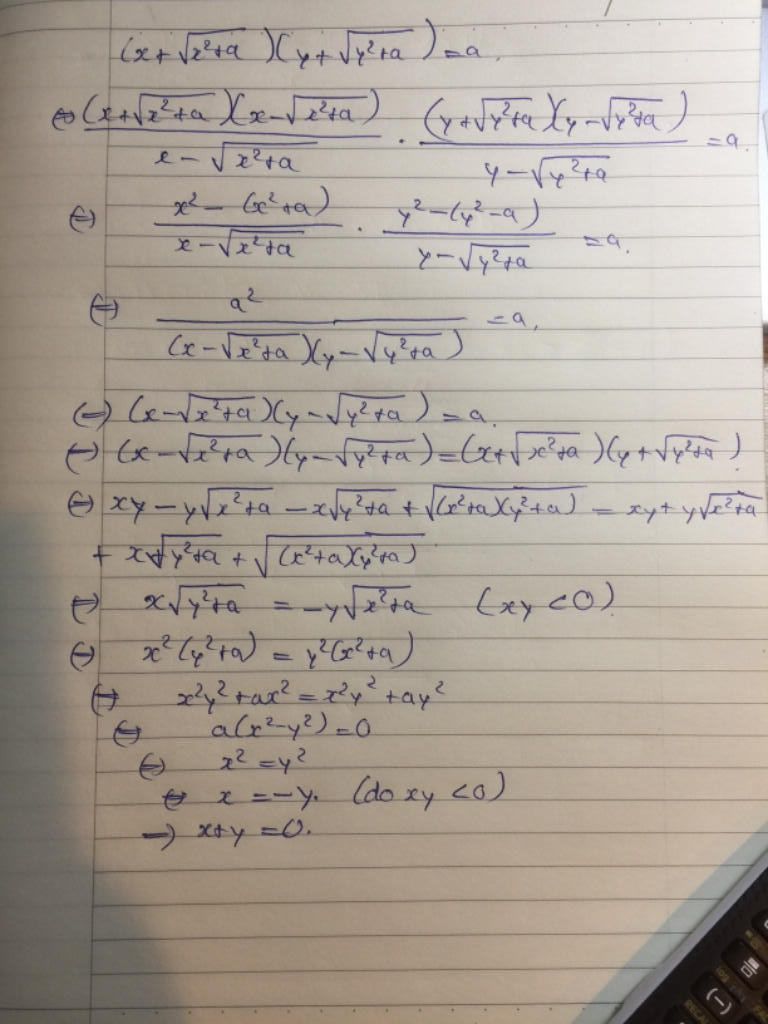 (x+√(x²+a))(y+√(y²+a))=a.
⇔ (x+√(x²+a))(x-√(x²+a))/(x-√(x²+a)) . (y+√(y²+a))(y-√(y²+a))/(y-√(y²+a)) =a
⇔ (x²-(x²+a))/(x-√(x²+a)) . (y²-(y²-a))/(y-√(y²+a)) =a.
⇔ a²/((x-√(x²+a))(y-√(y²+a))) =a.
⇔ (x-√(x²+a))(y-√(y²+a))=a.
⇔ (x-√(x²+a))(y-√(y²+a))=(x+√(x²+a))(y+√(y²+a))
⇔ xy-y√(x²+a)-x√(y²+a)+√((x²+a)(y²+a)) = xy+y√(x²+a)
+ x√(y²+a)+√((x²+a)(y²+a))
⇔ x√(y²+a) = -y√(x²+a) (xy<0)
⇔ x²(y²+a) = y²(x²+a)
⇔ x²y²+ax²=x²y²+ay²
⇔ a(x²-y²)=0
⇔ x²=y²
⇔ x=-y. (do xy<0)
⇒ x+y=0.
(-)